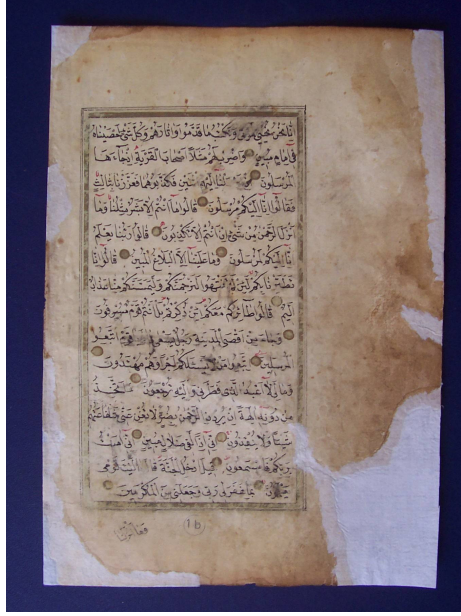 انا نحن نحيي الموتى ونكتب ما قدموا واثارهم وكل شيء احصيناه
في امام مبين واضرب لهم مثلا اصحاب القرية اذ جاءها
المرسلون اذ ارسلنا اليهم اثنين فكذبوهما فعززنا بثالث
فقالوا انا اليكم مرسلون قالوا ما انتم الا بشر مثلنا وما
انزل الرحمن من شيء ان انتم الا تكذبون قالوا ربنا يعلم
انا اليكم لمرسلون وما علينا الا البلاغ المبين قالوا انا
تطيرنا بكم لئن لم تنتهوا لنرجمنكم وليمسنكم منا عذاب
اليم قالوا طائركم معكم ائن ذكرتم بل انتم قوم مسرفون
وجاء من اقصى المدينة رجل يسعى قال يا قوم اتبعوا
المرسلين اتبعوا من لا يسئلكم اجرا وهم مهتدون
وما لي لا اعبد الذي فطرني واليه ترجعون ءاتخذ
من دونه الهة ان يردن الرحمن بضر لا تغن عني شفاعتهم
شيئا ولا ينقذون اني اذا لفي ضلال مبين اني امنت
بربكم فاسمعون قيل ادخل الجنة قال يا ليت قومي
يعلمون بما غفر لي ربي وجعلني من المكرمين
1b